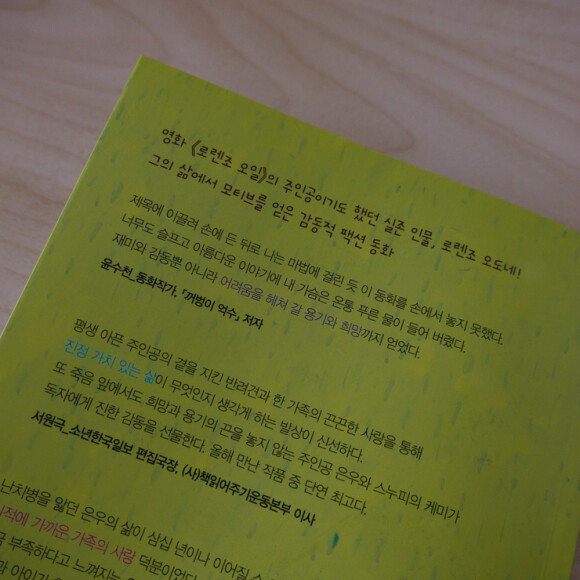 영화 《로렌조 오일》의 주인공이기도 했던 실존 인물, 로렌조 오도네!
그의 삶에서 모티브를 얻은 감동적 팩션 동화
제목에 이끌려 손에 든 뒤로 나는 마법에 걸린 듯 이 동화를 손에서 놓지 못했다.
너무도 슬프고 아름다운 이야기에 내 가슴은 온통 푸른 물이 들어 버렸다.
재미와 감동뿐 아니라 어려움을 헤쳐 갈 용기와 희망까지 얻었다.
윤수천_동화작가, 『꺼벙이 억수』 저자
평생 아픈 주인공의 곁을 지킨 반려견과 한 가족의 끈끈한 사랑을 통해
진정 가치 있는 삶이 무엇인지 생각게 하는 발상이 신선하다.
또 죽음 앞에서도 희망과 용기의 끈을 놓지 않는 주인공 은우와 스누피의 케미가
독자에게 진한 감동을 선물한다. 올해 만난 작품 중 단연 최고다.
서원극_소년한국일보 편집국장, (사)책읽어주기운동본부 이사
난치병을 앓던 은우의 삶이 삼십 년이나 이어질 수
적에 가까운 가족의 사랑 덕분이었다
부족하다고 느껴지는
아이가